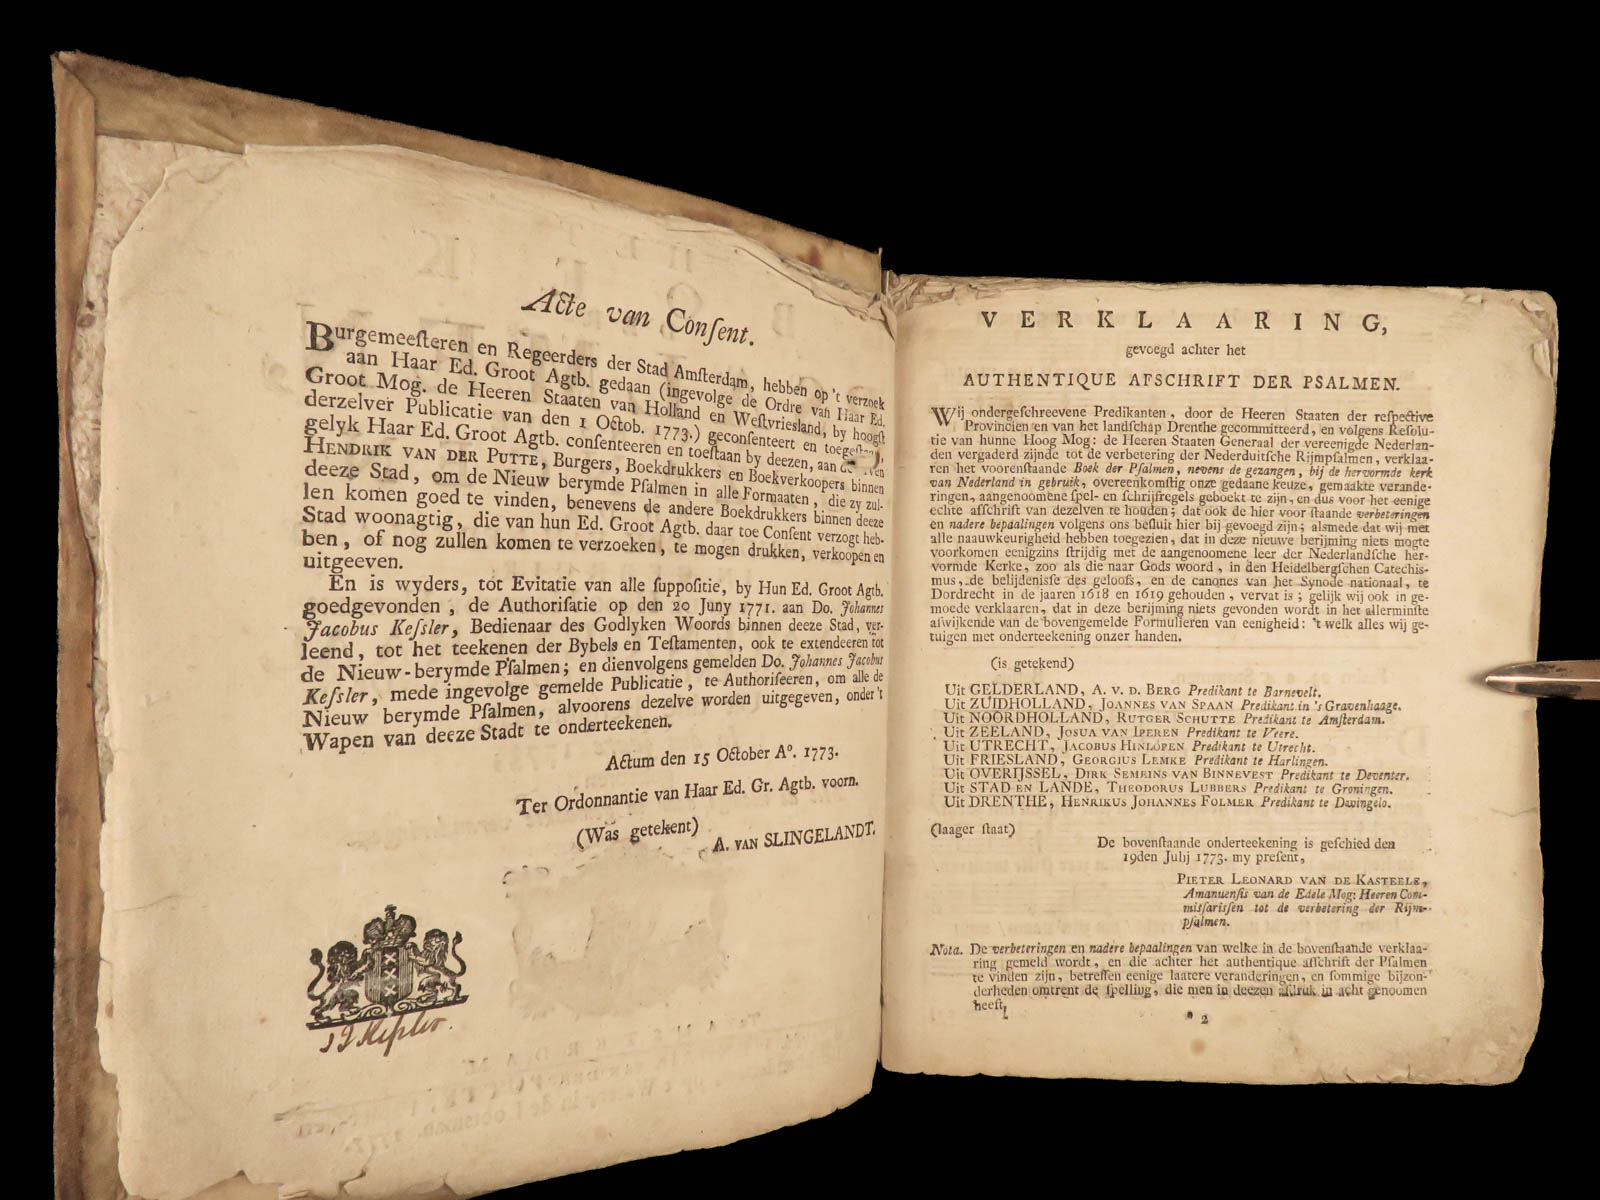 Acte van Conſent.
Burgemeeſteren en Regeerders der Stad Amſterdam, hebben op 't verzoek
aan Haar Ed. Groot Agtb. gedaan (ingevolge de Ordre van Haar Ed.
Groot Mog. de Heeren Staaten van Holland en Weſtvriesland, by hoogſt
derzelver Publicatie van den 1 Octob. 1773.) geconſenteert en toegeſtaan,
gelyk Haar Ed. Groot Agtb. conſenteeren en toeſtaan by deezen, aan
HENDRIK VAN DER PUTTE, Burgers, Boekdrukkers en Boekverkoopers binnen
deeze Stad, om de Nieuw berymde Pſalmen in alle Formaaten, die zy zul-
len komen goed te vinden, benevens de andere Boekdrukkers binnen deeze
Stad woonagtig, die van hun Ed. Groot Agtb. daar toe Conſent verzogt heb-
ben, of nog zullen komen te verzoeken, te mogen drukken, verkoopen en
uitgeeven.
En is wyders, tot Evitatie van alle ſuppoſitie, by Hun Ed. Groot Agtb.
goedgevonden, de Authoriſatie op den 20 Juny 1771. aan Do. Johannes
Jacobus Keſsler, Bedienaar des Godlyken Woords binnen deeze Stad, ver-
leend, tot het teekenen der Bybels en Teſtamenten, ook te extendeeren tot
de Nieuw-berymde Pſalmen; en dienvolgens gemelden Do. Johannes Jacobus
Keſsler, mede ingevolge gemelde Publicatie, te Authoriſeeren, om alle de
Nieuw berymde Pſalmen, alvoorens dezelve worden uitgegeven, onder 't
Wapen van deeze Stadt te onderteekenen.
Actum den 15 October Aº. 1773.
Ter Ordonnantie van Haar Ed. Gr. Agtb. voorn.
(Was getekent)
A. VAN SLINGELANDT.
J J Keſsler.
VERKLAARING,
gevoegd achter het
AUTHENTIQUE AFSCHRIFT DER PSALMEN.
Wij ondergeſchreevene Predikanten, door de Heeren Staaten der reſpective
Provincien en van het landſchap Drenthe gecommitteerd, en volgens Reſolu-
tie van hunne Hoog Mog: de Heeren Staaten Generaal der vereenigde Nederlan-
den vergaderd zijnde tot de verbetering der Nederduitſche Rijmpſalmen, verklaa-
ren het voorenſtaande Boek der Pſalmen, nevens de gezangen, bij de hervormde kerk
van Nederland in gebruik, overeenkomſtig onze gedaane keuze, gemaakte verande-
ringen, aangenoomene ſpel- en ſchrijfregels geboekt te zijn, en dus voor het eenige
echte afſchrift van dezelven te houden; dat ook de hier voor ſtaande verbeteringen
en nadere bepaalingen volgens ons beſluit hier bij gevoegd zijn; alsmede dat wij met
alle naauwkeurigheid hebben toegezien, dat in deze nieuwe berijming niets mogte
voorkomen eenigzins ſtrijdig met de aangenoomene leer der Nederlandſche her-
vormde Kerke, zoo als die naar Gods woord, in den Heidelbergſchen Catechis-
mus, de belijdeniſſe des geloofs, en de canones van het Synode nationaal, te
Dordrecht in de jaaren 1618 en 1619 gehouden, vervat is; gelijk wij ook in ge-
moede verklaaren, dat in deze berijming niets gevonden wordt in het allerminſte
afwijkende van de bovengemelde Formulieren van eenigheid: 't welk alles wij ge-
tuigen met onderteekening onzer handen.
(is getekend)
Uit GELDERLAND, A. V. D. BERG Predikant te Barnevelt.
Uit ZUIDHOLLAND, JOANNES VAN SPAAN Predikant in 's Gravenhaage.
Uit NOORDHOLLAND, RUTGER SCHUTTE Predikant te Amſterdam.
Uit ZEELAND, JOSUA VAN IPEREN Predikant te Veere.
Uit UTRECHT, JACOBUS HINLÓPEN Predikant te Utrecht.
Uit FRIESLAND, GEORGIUS LEMKE Predikant te Harlingen.
Uit OVERIJSSEL, DIRK SEMEINS VAN BINNEVEST Predikant te Deventer.
Uit STAD EN LANDE, THEODORUS LUBBERS Predikant te Groningen.
Uit DRENTHE, HENRIKUS JOHANNES FOLMER Predikant te Dwingelo.
(laager ſtaat)
De bovenſtaande onderteekening is geſchied den
19den Julij 1773. my preſent,
PIETER LEONARD VAN DE KASTEELE,
Amanuenſis van de Edele Mog: Heeren Com-
miſſariſſen tot de verbetering der Rijm-
pſalmen.
Nota. De verbeteringen en nadere bepaalingen van welke in de bovenſtaande verklaa-
ring gemeld wordt, en die achter het authentique afſchrift der Pſalmen
te vinden zijn, betreffen eenige laatere veranderingen, en ſommige bijzon-
derheden omtrent de ſpelling, die men in deezen afdruk in acht genoomen
heeft.
* 2